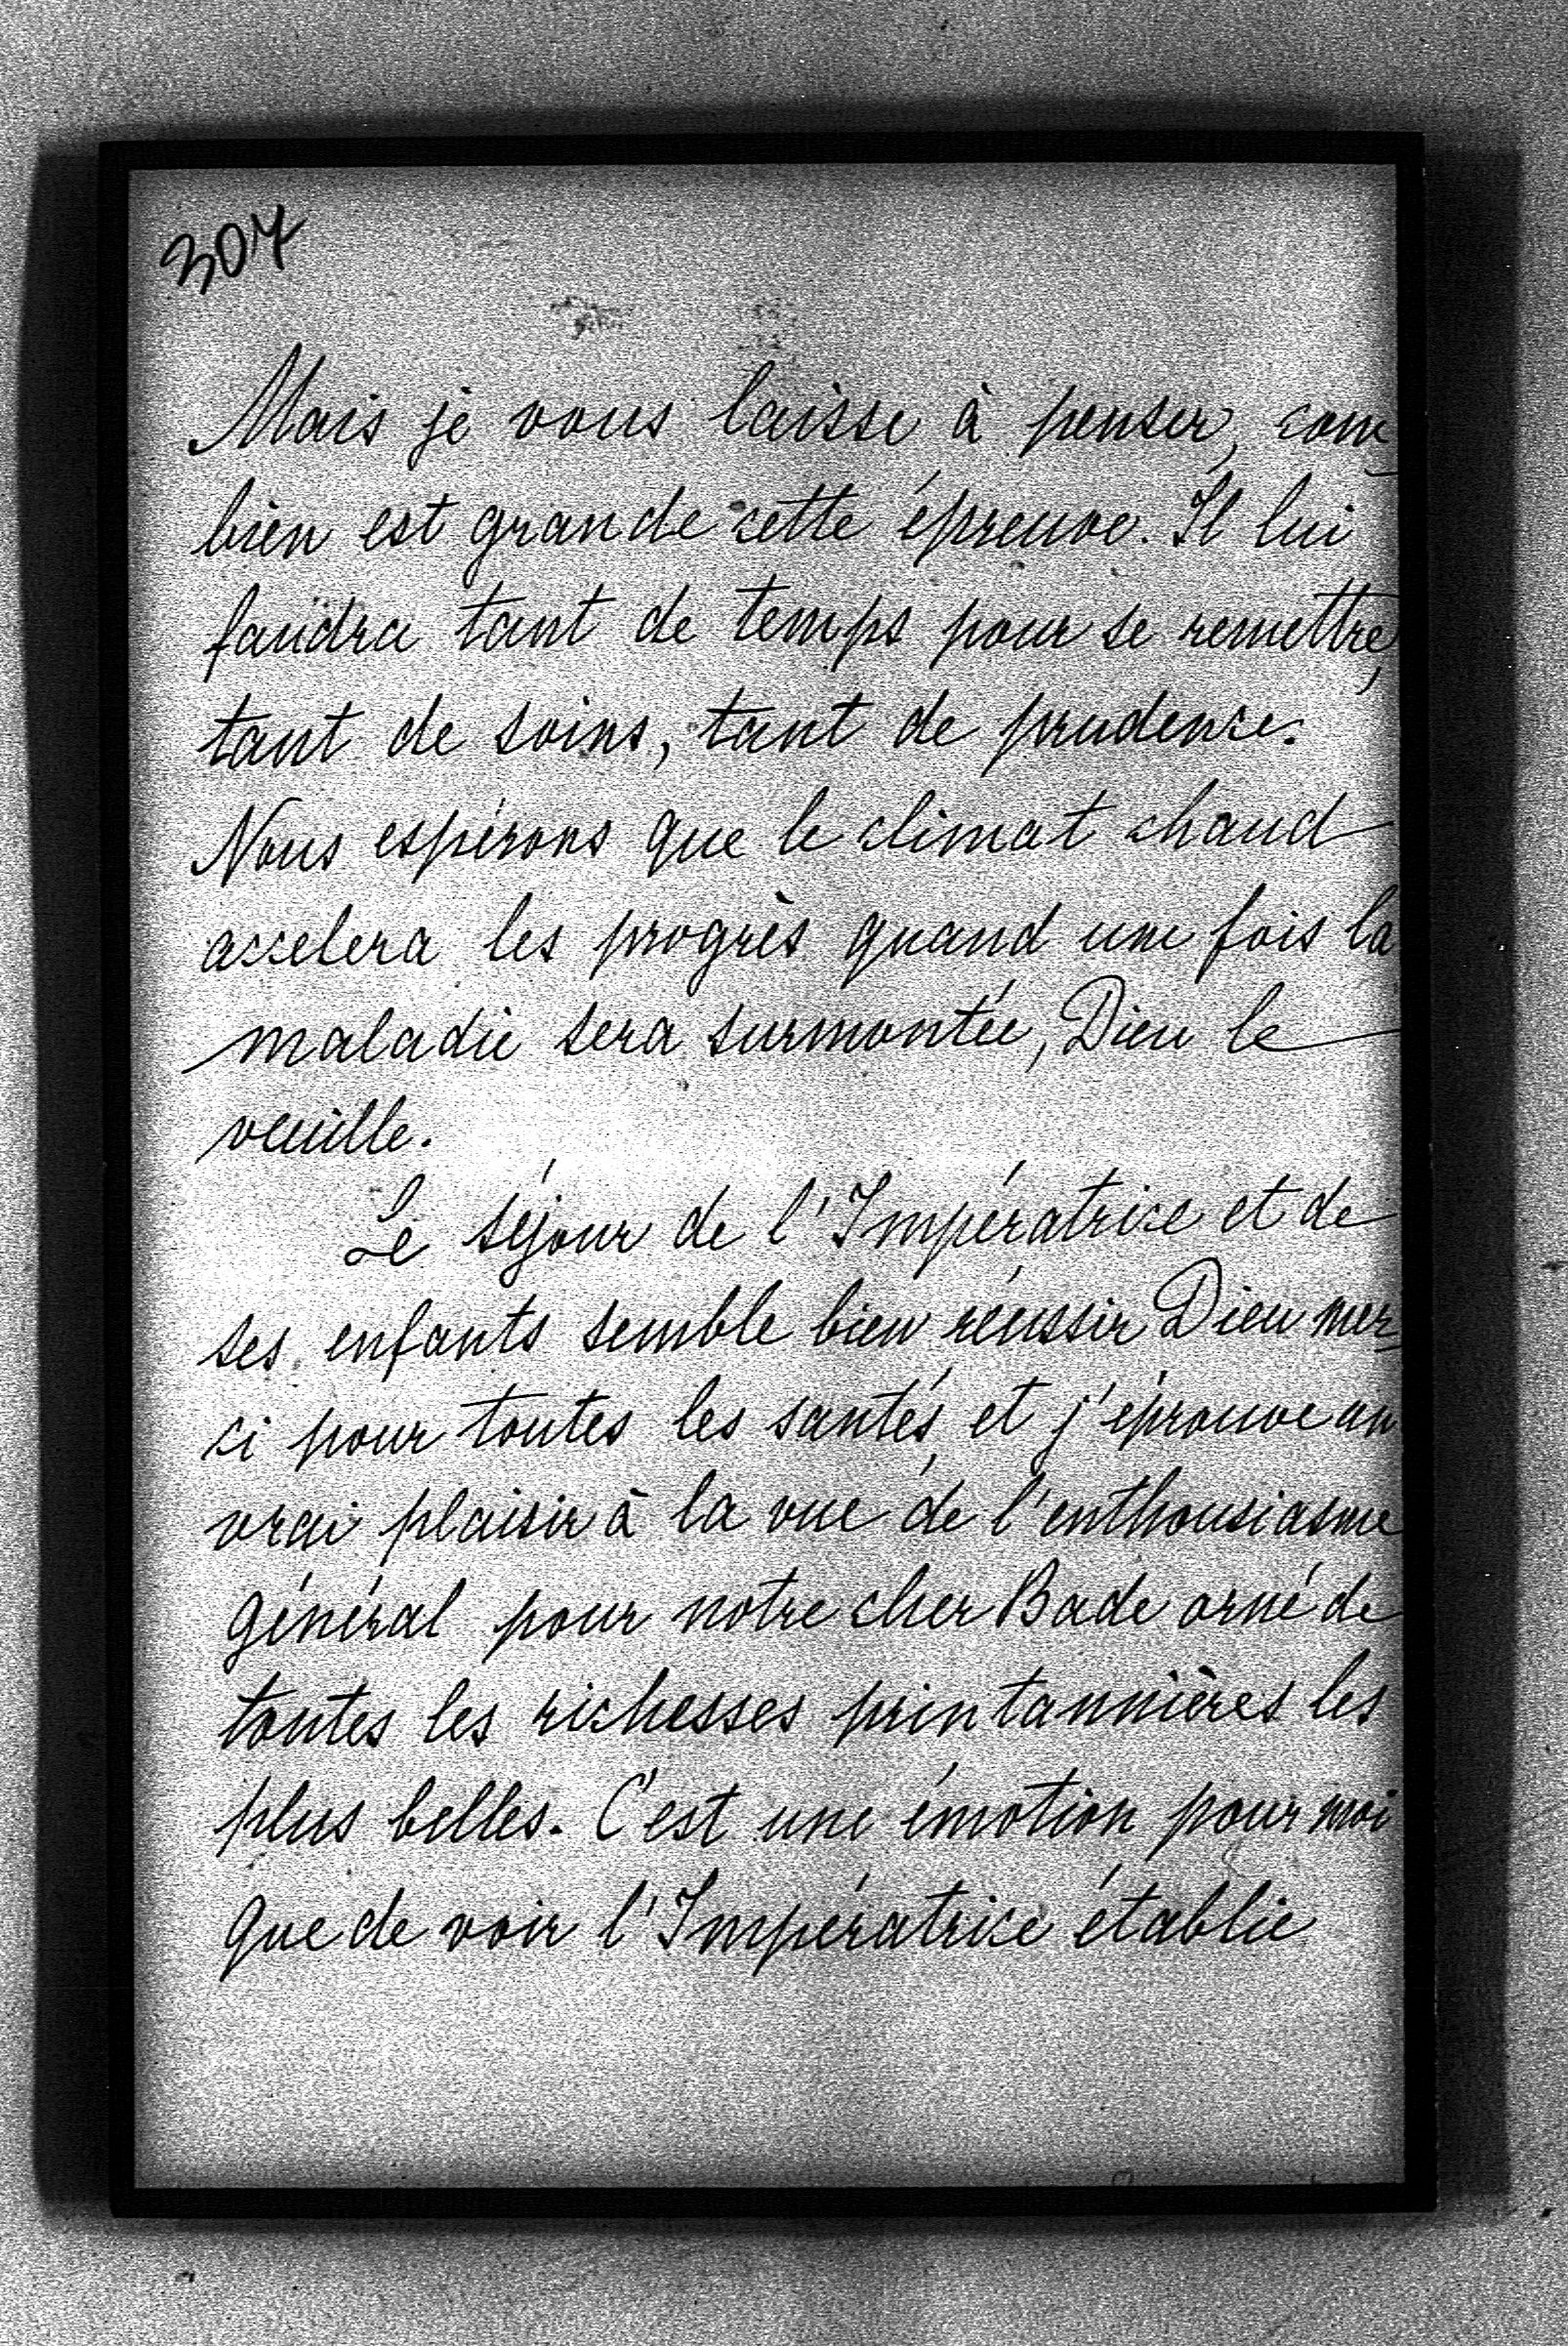 307
Mais je vous laisse à penser, com-
bien est grande cette épreuve. Il lui
faudra tant de temps pour se remettre,
tant de soins, tant de prudence.
Nous espérons que le climat chaud
accelera les progrès quand une fois la
maladie sera surmontée, Dieu le
veuille.
Le séjour de l'Impératrice et de
ses enfants semble bien réussir Dieu mer-
ci pour toutes les santés, et j'éprouve un
vrai plaisir à la vue de l'enthousiasme
général pour notre cher Bade orné de
toutes les richesses printannières les
plus belles. C'est une émotion pour moi
que de voir l'Impératrice établie